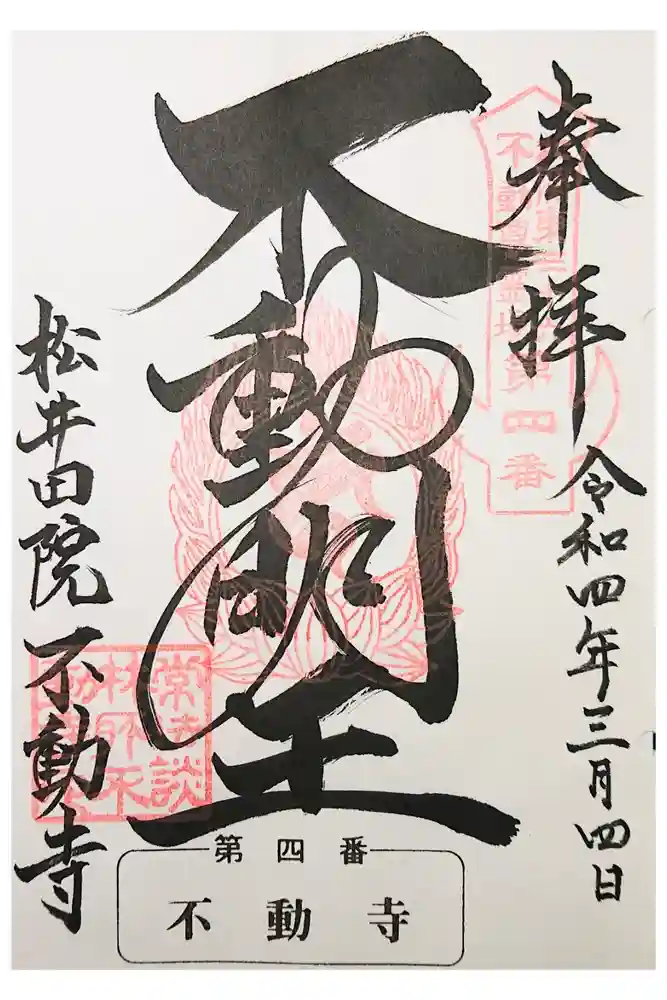 奉拝
令和四年三月四日
不動明王
松井田院不動寺
第四番
不動寺
第四番